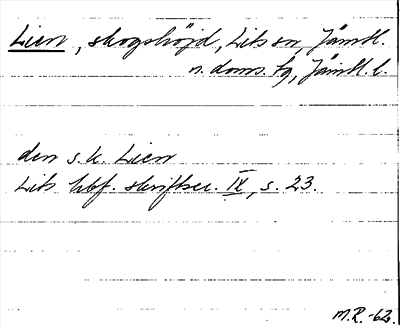 Lien, skogshöjd, Lits sn, Jämtl.
n. doms. tg, Jämtl. l.
den s.k. Lien
Lits hbf. skriftser. IX, s. 23.
M.R.-62.